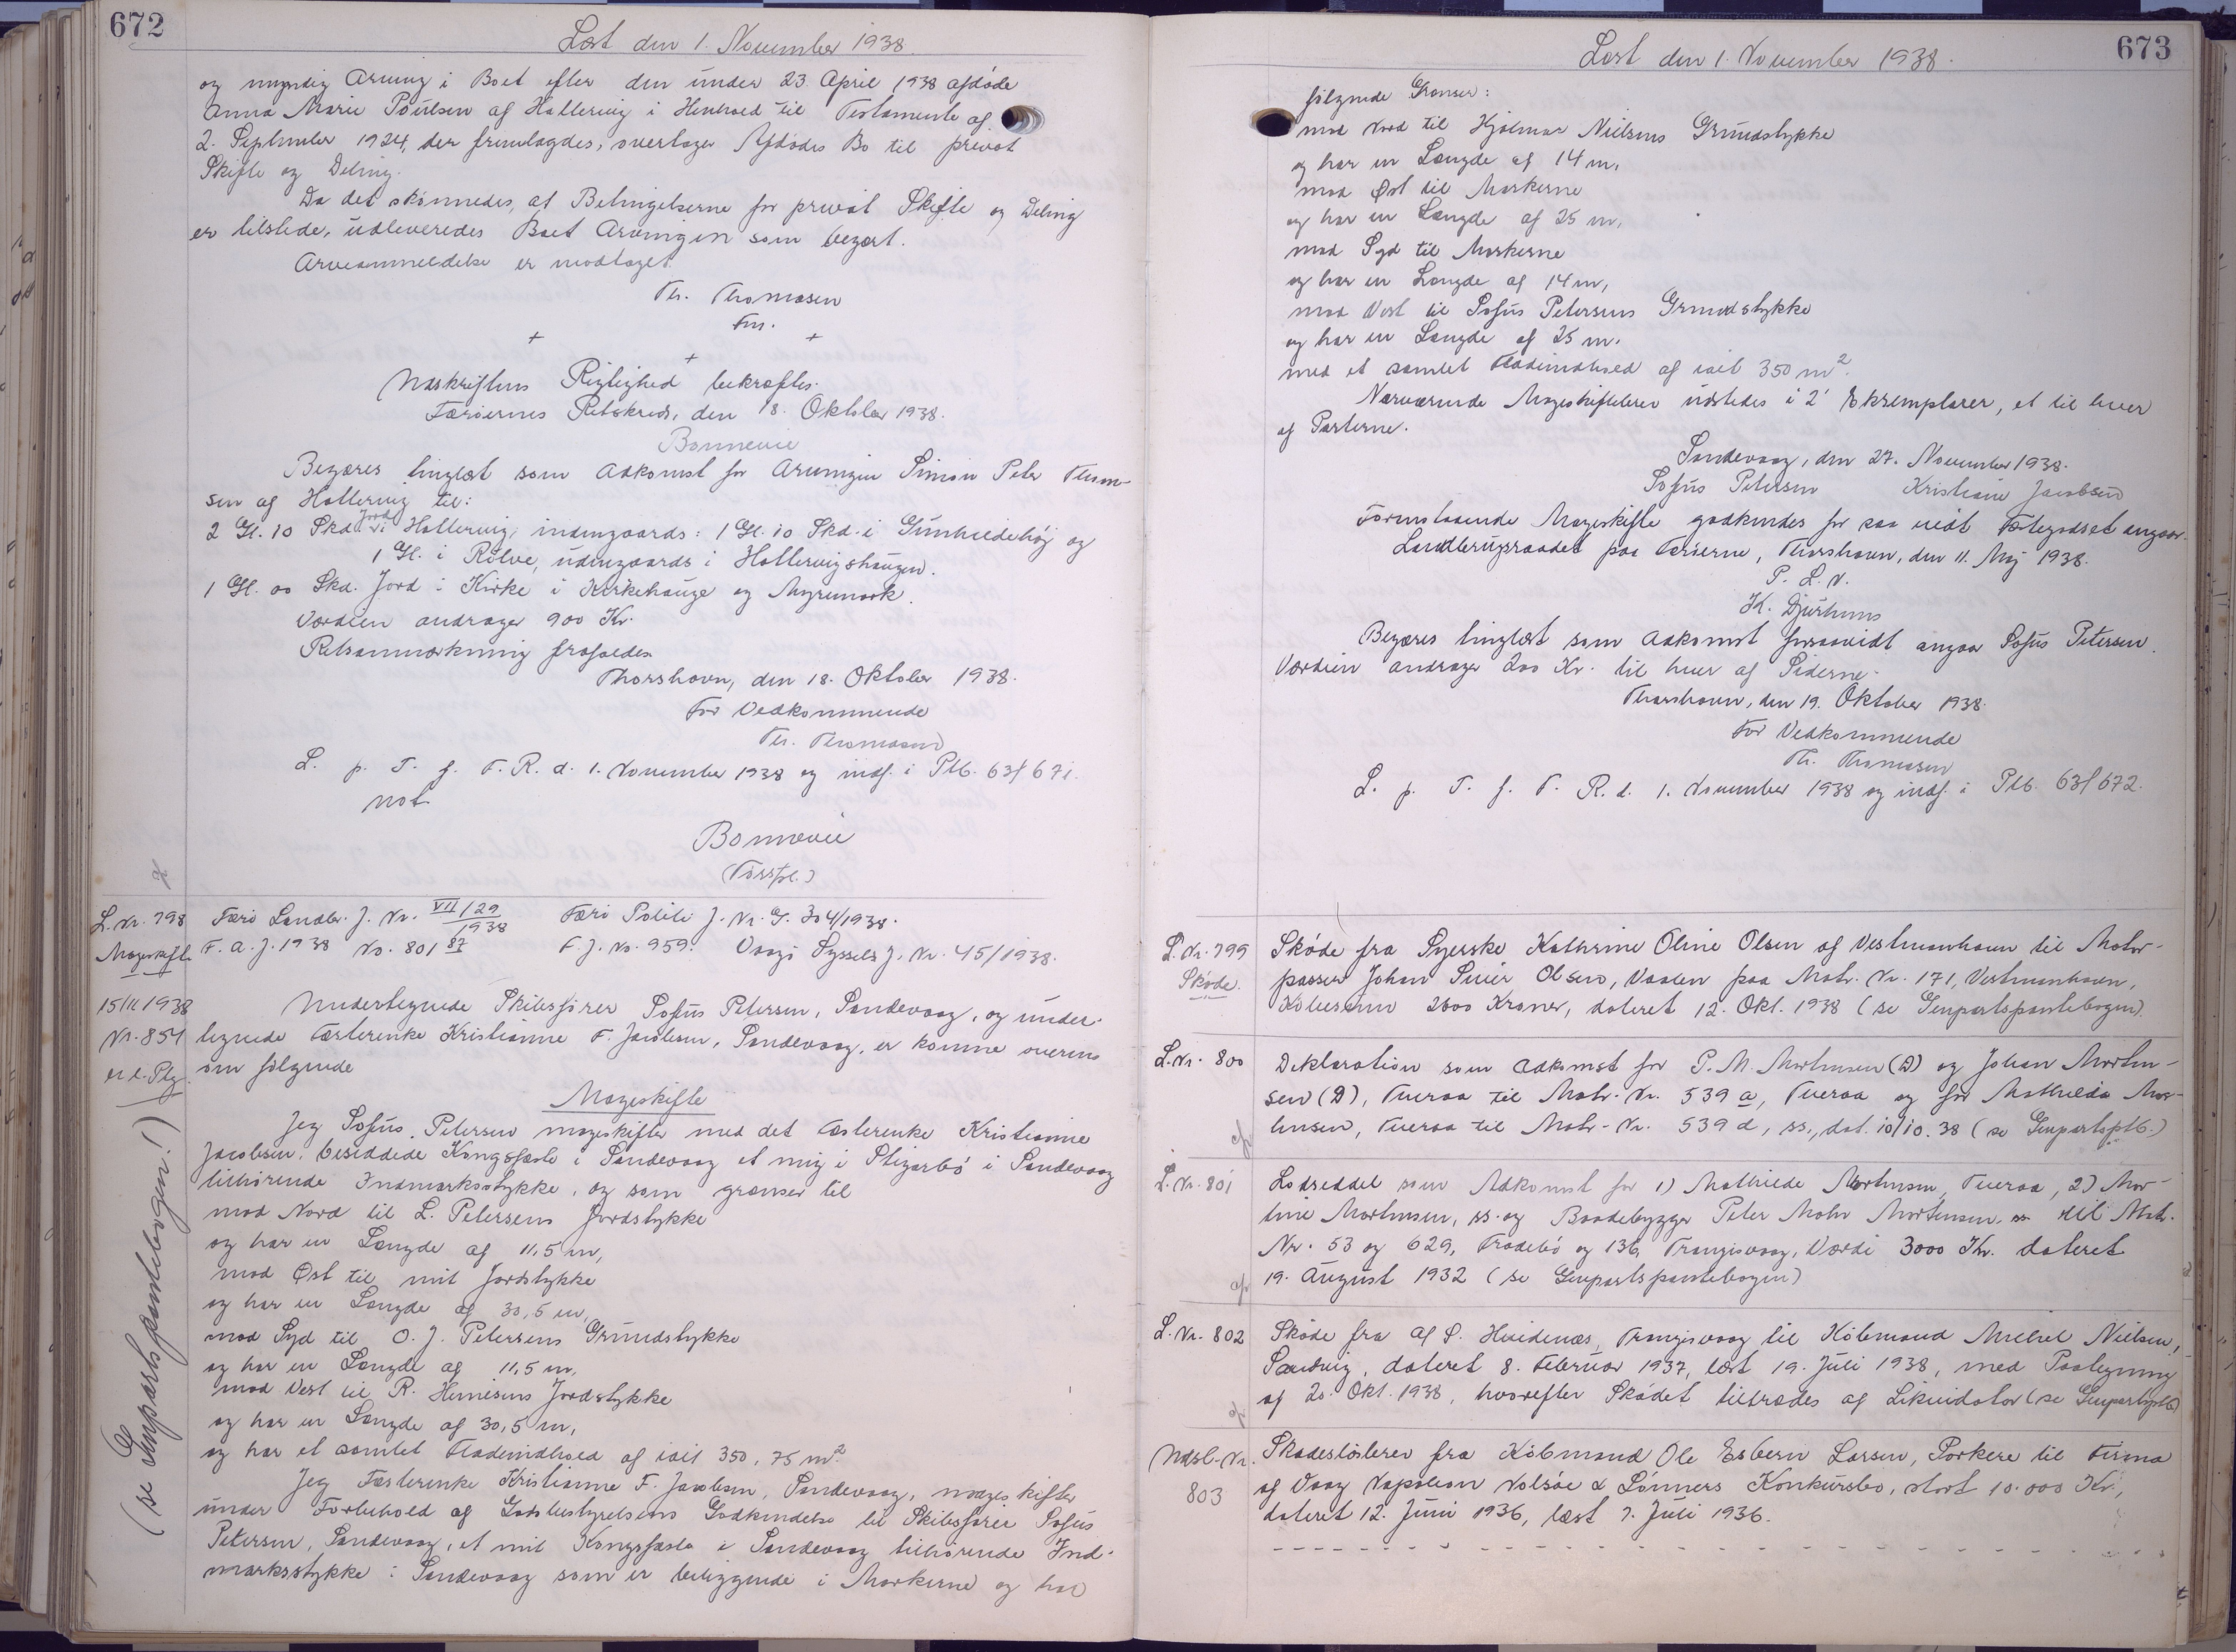 672
Læst den 1. November 1938.
og myndig Arving i Boet efter den under 23. April 1938 afdøde
Anna Marie Poulsen af Hattervig i Henhold til Testamente af
2. September 1924, der fremlagdes, overtager Afdødes Bo til privat
Skifte og Deling.
Da det skønnedes, at Betingelserne for privat Skifte og Deling
er tilstede, udleveredes Boet Arvingen som begært.
Arveanmeldelse er modtaget.
Th. Thomasen
Fm.
+ + +
Udskriftens Rigtighed bekræftes.
Færøernes Retskreds, den 18. Oktober 1938.
Bonnevie
Begæres tinglæst som Adkomst for Arvingen Simon Peter Thom-
sen af Hattervig til:
2 Gl. 10 Skd. Jord i Hattervig, indengaards: 1 Gl. 10 Skd. i Gunhildehøj og
1 Gl. i Rólve, udengaards i Hattervigshaugen.
1 Gl. 00 Skd. Jord i Kirke i Kirkehauge og Myremark.
Værdien andrager 900 Kr.
Retsanmærkning frafaldes
Thorshavn, den 18. Oktober 1938.
For Vedkommende
Th. Thomasen
L. p. T. f. F. R. d. 1. November 1938 og indf. i Ptb. 63f 671.
not
Bonnevie
L. Nr. 798 Færø Landbr. J. Nr. VII/29 1938 Færø Politi J. Nr. G. 304/1938.
Mageskifte F. A. J. 1938 No. 801 87 F. J. No. 959. Vaagø Syssels J. Nr. 45/1938.
15/11 1938 Undertegnede Skibsfører Sofus Petersen, Sandevaag, og under-
Nr. 854 tegnede Fæsterenke Kristianne F. Jacobsen, Sandevaag, er komne overens
om følgende
Mageskifte
Jeg Sofus Petersen mageskifter med det Fæsterenke Kristianne
Jacobsen, besiddede Kongsfæste i Sandevaag et mig i Stigarbø i Sandevaag
tilhørende Indmarksstykke, og som grænser til
mod Nord til L. Petersens Jordstykke
og har en Længde af 11,5 m,
mod Øst til mit Jordstykke
og har en Længde af 30,5 m,
mod Syd til O. J. Petersens Grundstykke
og har en Længde af 11,5 m,
mod Vest til R. Henriksens Jordstykke
og har en Længde af 30,5 m,
og har et samlet Fladeindhold af ialt 350,75 m².
Jeg Fæsterenke Kristianne F. Jacobsen, Sandevaag, mageskifter
under Forbehold af Godsbestyrelsens Godkendelse til Skibsfører Sofus
Petersen, Sandevaag, et mit Kongsfæste i Sandevaag tilhørende Ind-
marksstykke i Sandevaag som er beliggende i Markerne og har
(se Genpartspantebogen!)
673
Læst den 1. November 1938.
følgende Grænser:
mod Nord til Hjalmar Nielsens Grundstykke
og har en Længde af 14 m,
mod Øst til Markerne
og har en Længde af 25 m,
mod Syd til Markerne
og har en Længde af 14 m,
mod Vest til Sofus Petersens Grundstykke
og har en Længde af 25 m.
med et samlet Fladeindhold af ialt 350 m².
Nærværende Mageskiftebrev udstedes i 2 Eksemplarer, et til hver
af Parterne.
Sandevaag, den 27. November 1938.
Sofus Petersen Kristiane Jacobsen
Foranstaaende Mageskifte godkendes for saa vidt Fæstegodset angaar.
Landbrugsraadet paa Færøerne, Thorshavn, den 11. Maj 1938.
P. L. V.
K. Djurhuus
Begæres tinglæst som Adkomst forsaavidt angaar Sofus Petersen.
Værdien andrager 200 Kr. til hver af Siderne.
Thorshavn, den 19. Oktober 1938.
For Vedkommende
Th. Thomasen
L. p. T. f. F. R. d. 1. November 1938 og indf. i Ptb. 63f 672.
L. Nr. 799 Skøde fra Syerske Kathrine Oline Olsen af Vestmanhavn til Motor-
Skøde. passer Johan Olsen, paa Matr. Nr. 171, Vestmanhavn,
Købesum 2600 Kroner, dateret 12. Okt. 1938 (se Genpartspantebogen).
L. Nr. 800 Deklaration som Adkomst for P. M. Mortensen (D) og Johan Morten-
sen (D), Tveraa til Matr. Nr. 539 a, Tveraa og for Mathilda Mor-
tensen, Tveraa til Matr. Nr. 539 d, ss., dat. 10/10. 38 (se Genpartsptb.)
L. Nr. 801 Lodseddel som Adkomst for 1) Mathilde Mortensen, Tveraa, 2) Mor-
tine Mortensen, ss. og Baadebygger Peter Mohr Mortensen, ss. til Matr.
Nr. 53 og 629, Frodebø og 136, Trangisvaag, Værdi 3000 Kr. dateret
19. August 1932 (se Genpartspantebogen)
L. Nr. 802 Skøde fra Af S. Hvidenæs, Trangisvaag til Købmand Michel Nielsen,
Sandvig, dateret 8. Februar 1937, læst 19. Juli 1938, med Paategning
af 20. Okt. 1938, hvorefter Skødet tiltrædes af Likvidator (se Genpartsptb.)
Udsl. Nr. Skadesløsbrev fra Købmand Ole Esbern Larsen, Porkere til Firma
803 af Vaag Napoleon Nolsøe & Sønners Konkursbo, stort 10.000 Kr.,
dateret 12. Juni 1936, læst 7. Juli 1936.